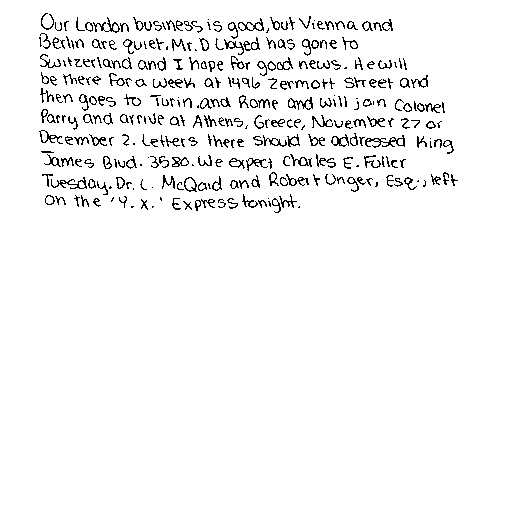 Our London business is good, but Vienna and
Berlin are quiet. Mr. D Lloyed has gone to
Switzerland and I hope for good news. He will
be there for a week at 1496 Zermott Street and
then goes to Turin.and Rome and will join Colonel
Parry and arrive at Athens, Greece, November 27 or
December 2. Letters there should be addressed King
James Blvd. 3580. We expect Charles E. Foller
Tuesday. Dr. L. McQaid and Robert Unger, Esq., left
on the 'Y. X.' Express tonight.